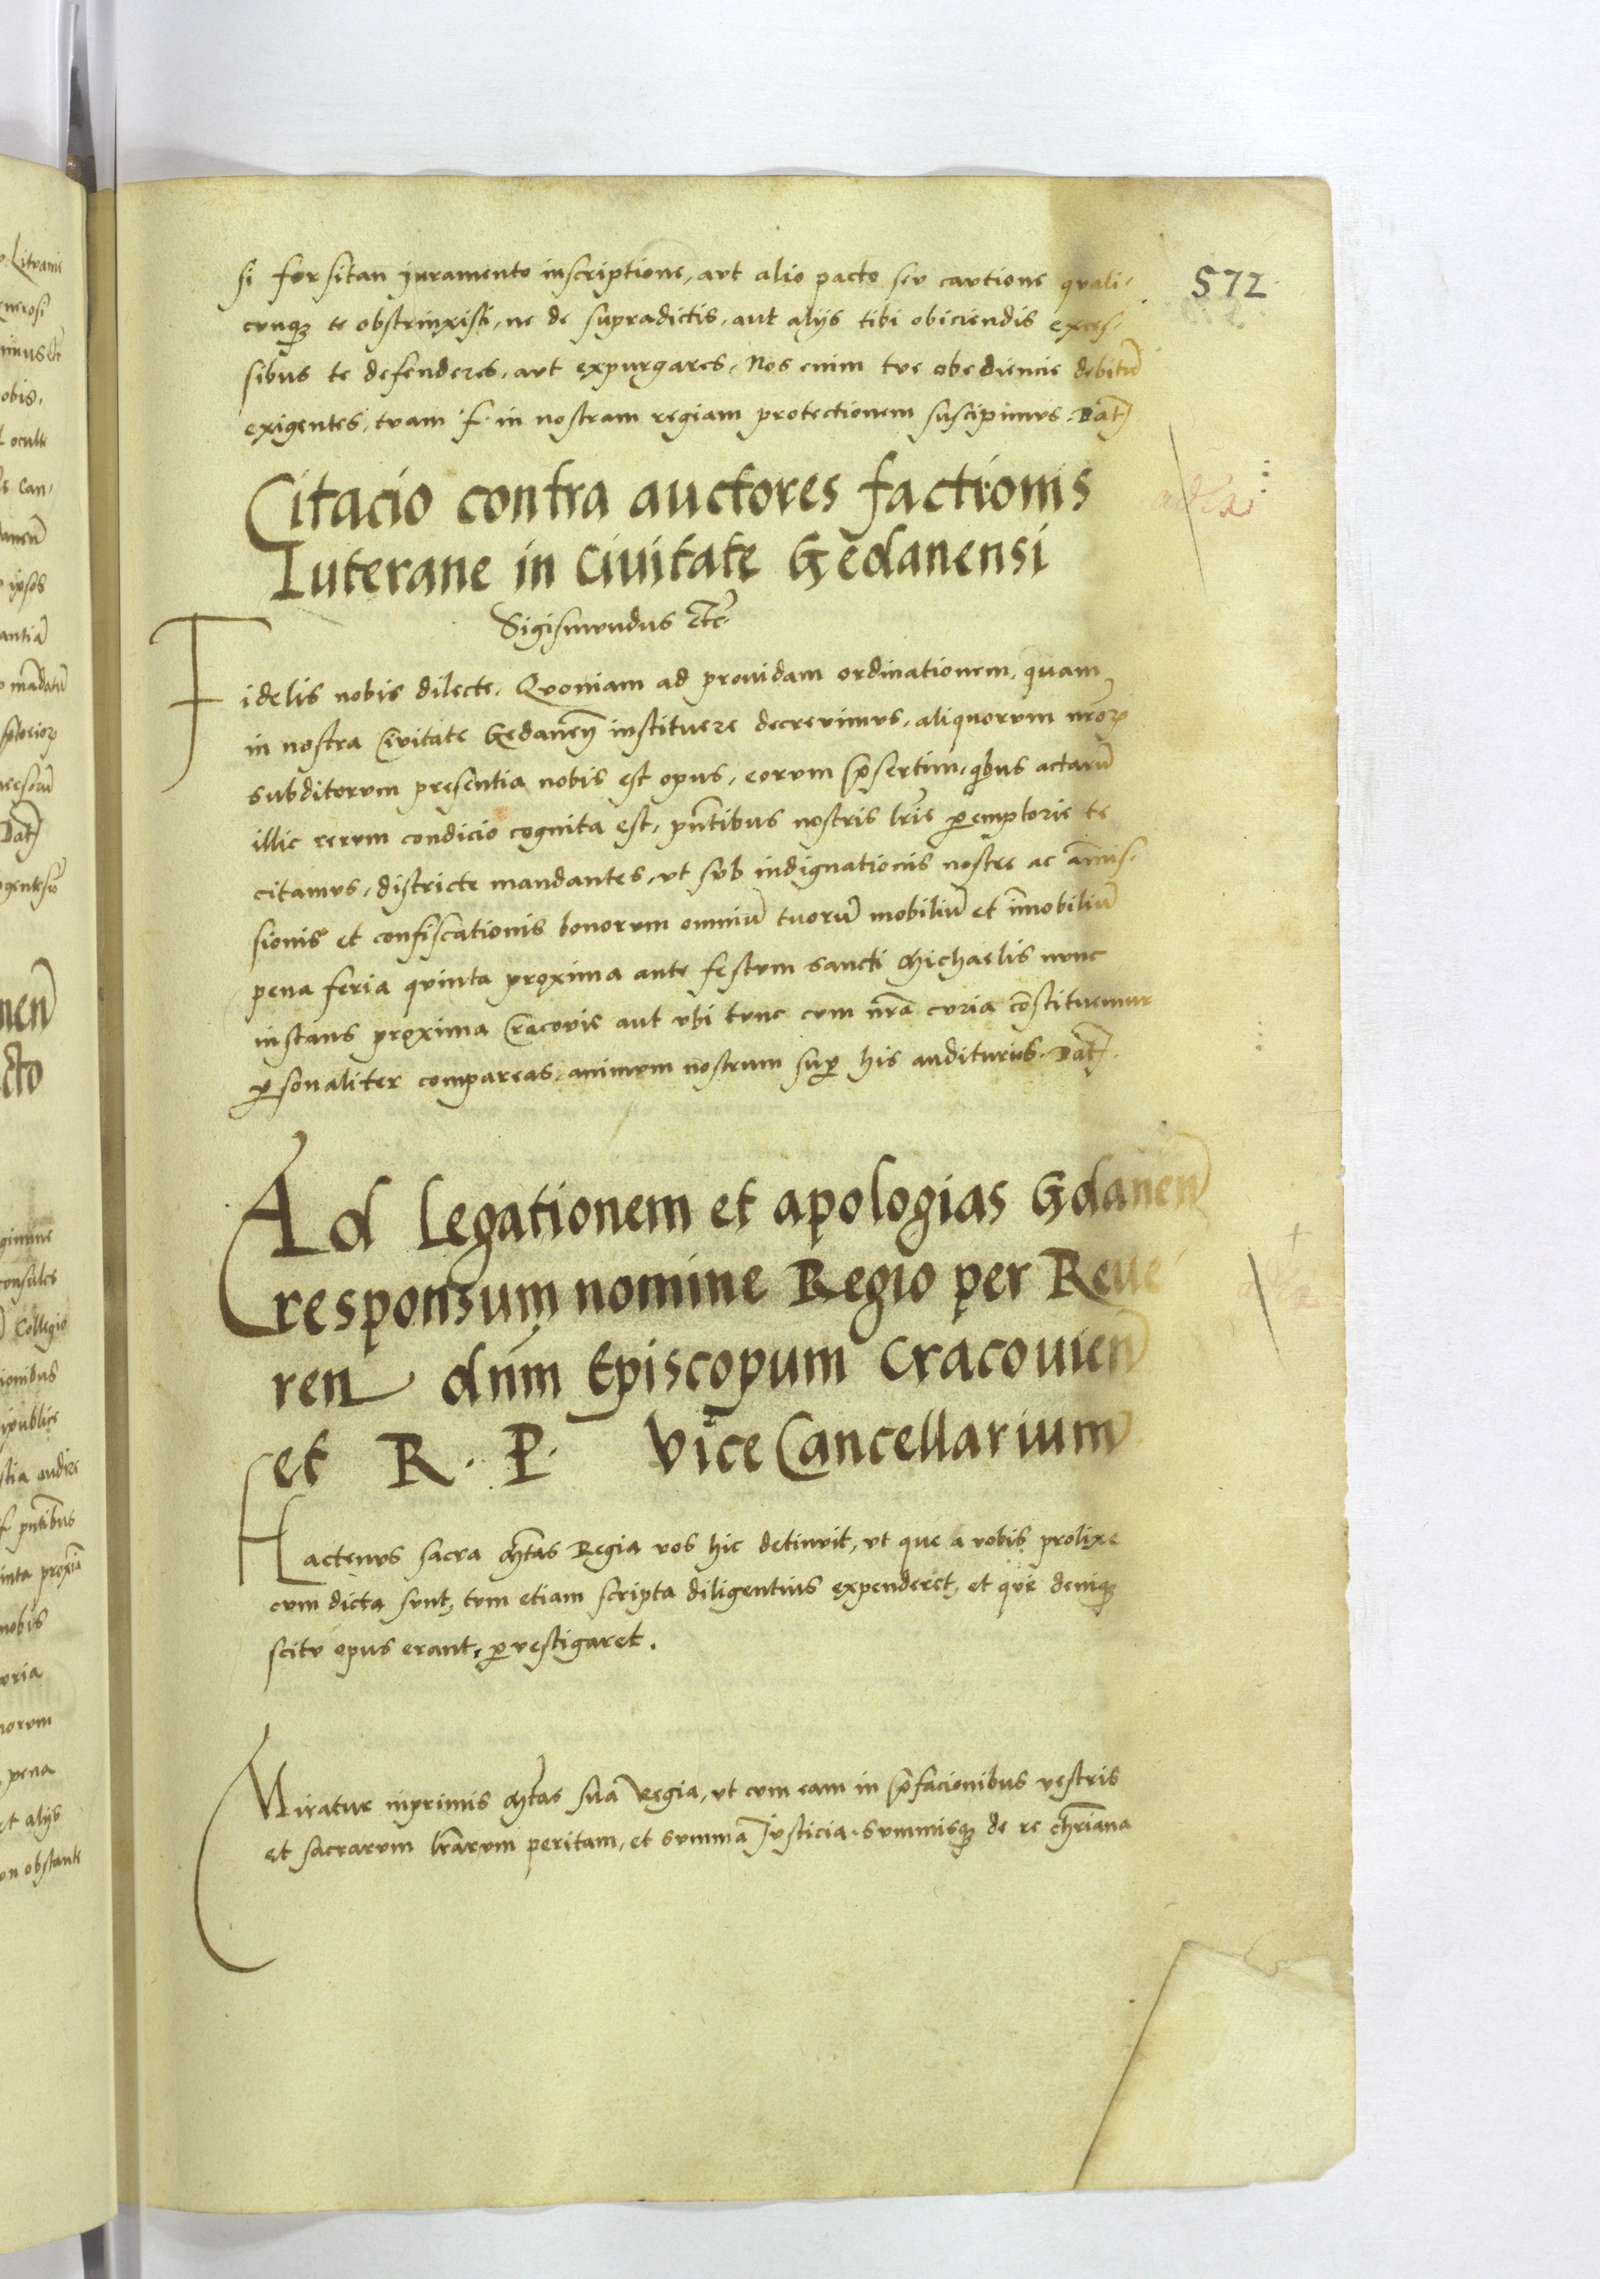 572
si forsitan juramento inscriptione, aut alio pacto seu cautione quali-
cunqꝫ te obstrinxisti, ne de supradictis, aut alijs tibi obiciendis exces-
sibus te defenderes, aut expurgares, Nos enim tue obediencie debitū
exigentes, tuam f. in nostram regiam protectionem suscipimus. Dat̄
Citacio contra auctores factionis
Luterane in Ciuitate Gedanensi
Sigismundus etc̄
Fidelis nobis dilecte. Quoniam ad prouidam ordinationem, quam
in nostra Ciuitate Gedanen̄ instituere decreuimus, aliquorum nr̄oꝝ
subditorum presentia nobis est opus, eorum p̄sertim, qͥbus actarū
illic rerum condicio cognita est, pn̄tibus nostris lr̄is ꝑemptorie te
citamus, districte mandantes, ut sub indignationis nostre ac amis-
sionis et confiscationis bonorum omniū tuorū mobiliū et īmobiliū
pena feria quinta proxima ante festum sancti Michaelis nunc
instans proxima Cracouie aut ubi tunc cum nr̄a curia cōstituemur
ꝑsonaliter compareas, animum nostrum suꝑ his auditurus. Dat̄.
Ad Legationem et apologias Gdanen̄
responsum nomine Regio per Reue
ren dn̄m Episcopum Cracouien̄
et R. P. Vice Cancellarium
Hactenus sacra Mt̄as Regia vos hic detinuit, ut que a vobis prolixe
cum dicta sunt, tum etiam scripta diligentius expenderet, et que deniqꝫ
scitu opus erant, ꝑvestigaret.
Miratur inprimis Mt̄as sua Regia, ut cum eam in p̄facionibus vestris
et sacrarum lr̄arum peritam, et summa Justicia, summisqꝫ de re chr̄iana